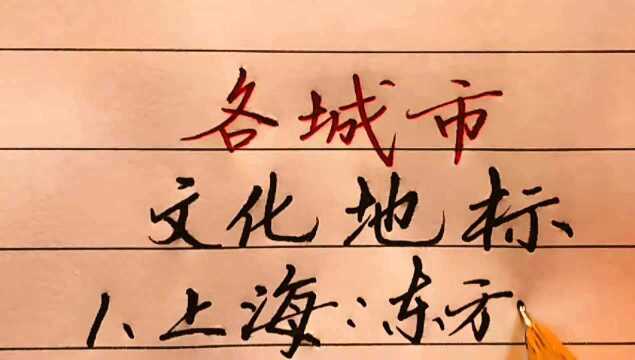 各城市
文化地标
1、上海:东方